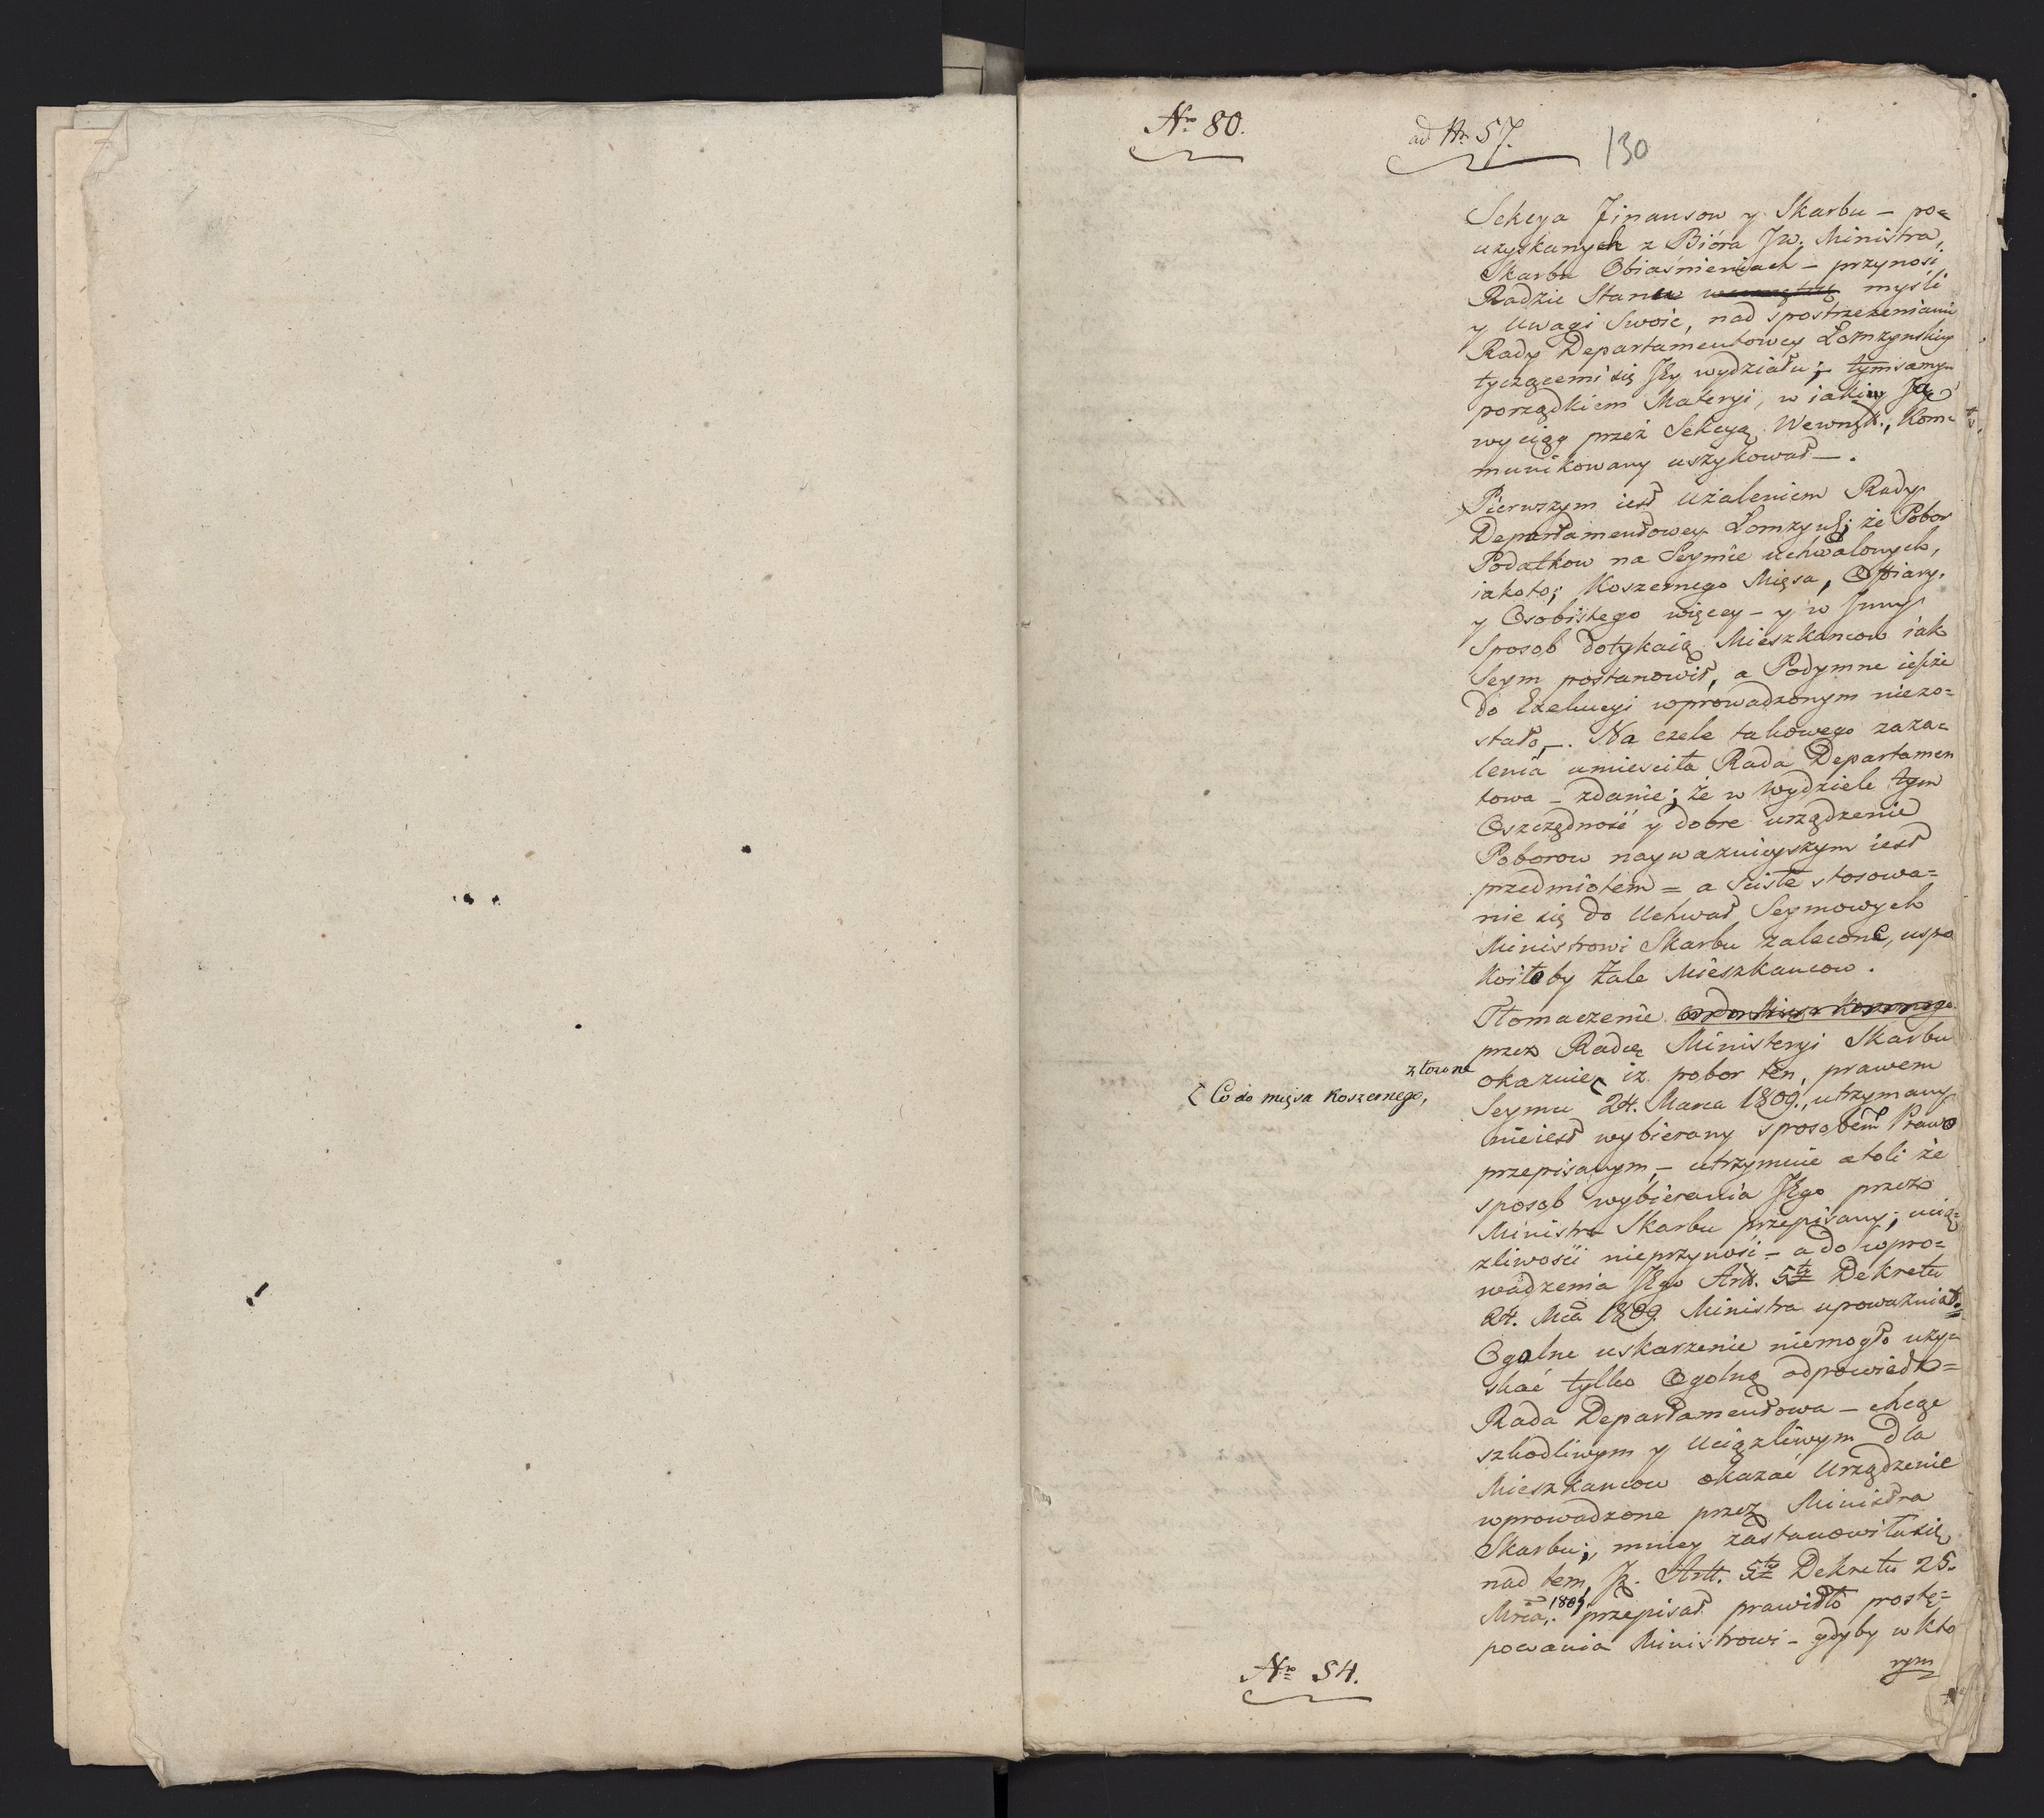 Nro 80.
ad Nr 57.
130
Sekcya Finansow y Skarbu – po=
uzyskanych z Bióra Jw. Ministra
Skarbu Obiaśnieniach – przynosi
Radzie Stanu myśli
y Uwagi Swoie, nad spostrzezeniami
Rady Departamentowey Łomzynskiey
tyczącemi się Jey wydziału; – tymsamym
porządkiem Materyi, w iakim Ją
wyciąg przez Sekcyą Wewnętr., Kom=
munikowany uszykował –.
Pierwszym iest Użaleniem Rady
Departamentowey Łomzyns; że Pobor
Podatkow na Seymie uchwalonych,
iakoto; Koszernego Mięsa, Offiary,
y Osobistego więcey – y w Inny
Sposob dotykaią Mieszkancow iak
Seym postanowił, a Podymne ieszcze
do Exekucyi wprowadzonym niezo=
stało –. Na czele takowego zaza=
lenia umiescita Rada Departamen
towa – zdanie; że w Wydziele tym
Oszczędność y dobre urządzenie
Poborow naywazniejszym iest
przedmiotem = a scisłe stosowa=
nie się do Uchwał Seymowych
Ministrowi Skarbu zalecone, uspo
koiłoby żale Mieszkancow.
Tłomaczenie co do Mięsa Koszernego
przez Radcę Ministeryi Skarbu
złozone
okazuie, iz pobor ten, prawem
[ Co do mięsa Koszernego,
Seymu 24. Marca 1809., utrzymany
nieiest wybierany sposobem Prawo
przepisanym, – utrzymuie atoli że
sposob wybierania Jego przez
Ministra Skarbu przepisany; ucią=
zliwości nieprzynosi – a do wpro=
wadzenia Jego Art. 5ty Dekretu
24. Mca 1809. Ministra upowazniał.
Ogolne uskarzenie niemogło uzy=
skać tylko Ogolną odpowiedz =
Rada Departamentowa – chcąc
szkodliwym y Uciązliwym dla
Mieszkancow okazać Urządzenie
wprowadzone przez Ministra
Skarbu; mniey zastanowiła się
nad tem, Jz. Artt. 5ty Dekretu 25.
Mrca. 1809. przepisał prawidło postę=
powania Ministrowi – gdyby w kto
rym
Nro 54.